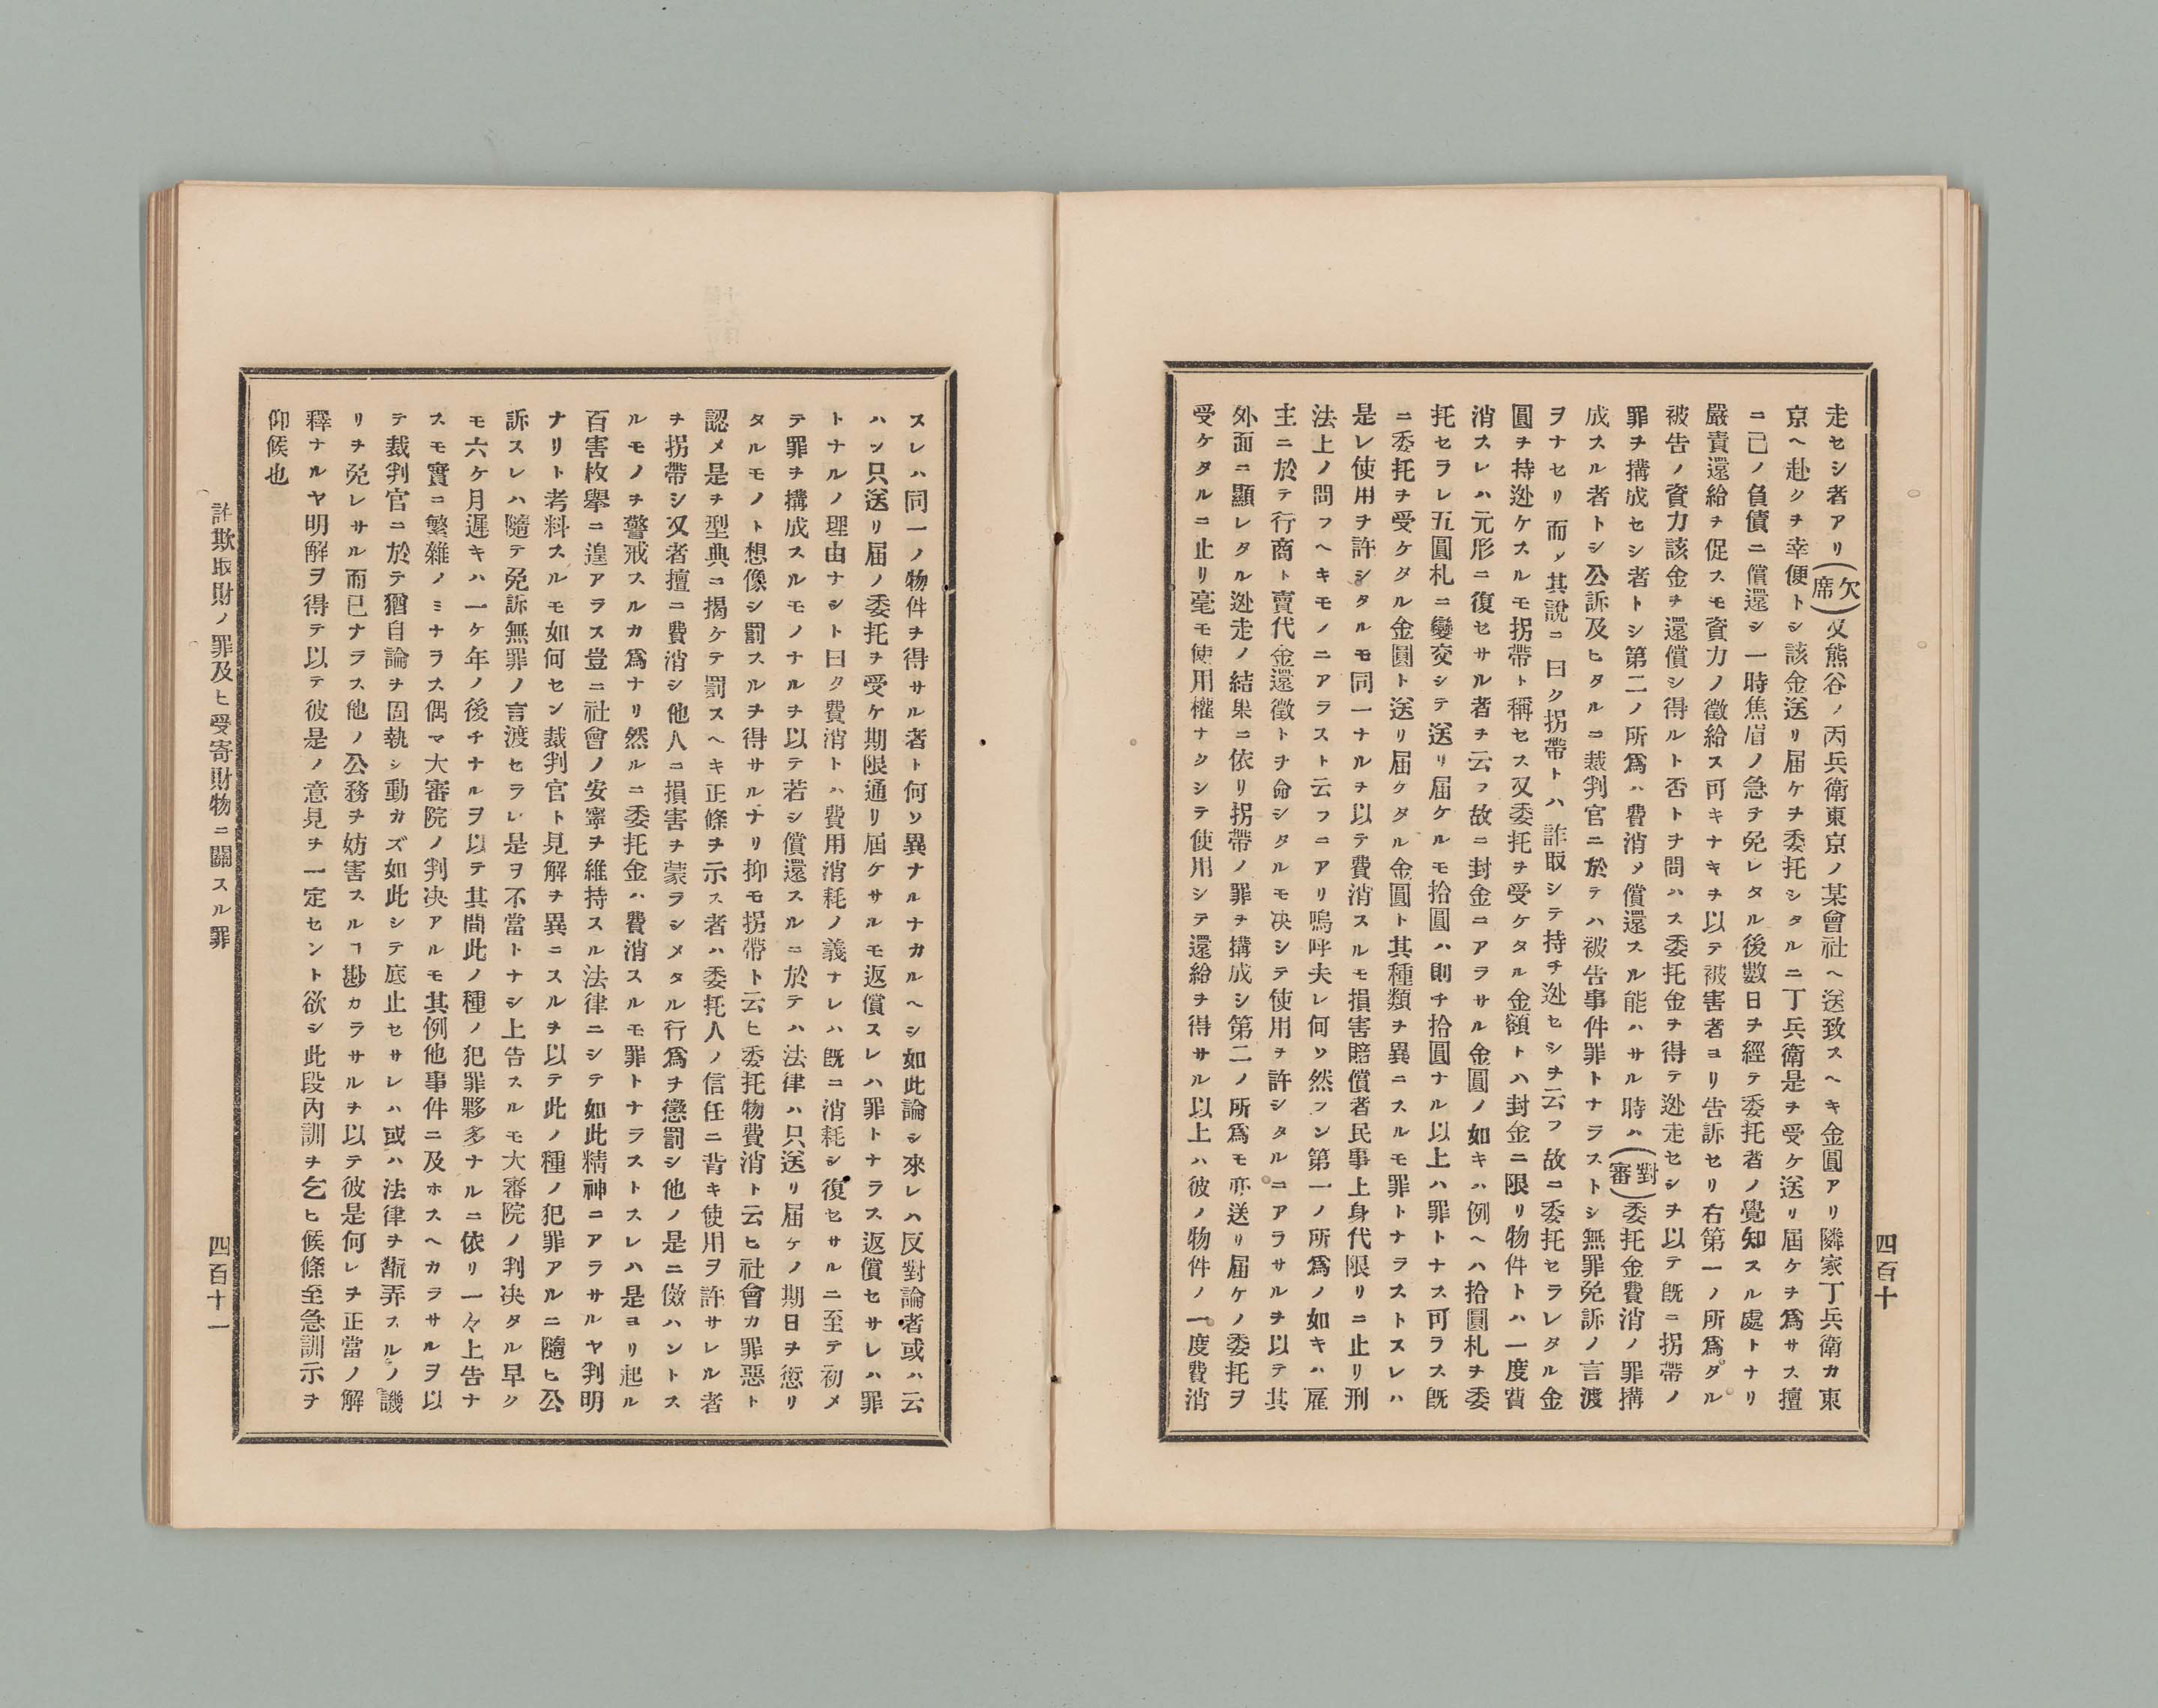 走セシ者アリ(欠席)又熊谷ノ丙兵衛東京ノ某會社ヘ送致スヘキ金圓アリ隣家丁兵衛カ東
京ヘ赴クヲ幸便トシ該金送リ届ケヲ委托シタルニ丁兵衛是ヲ受ケ送リ届ケヲ爲サス擅
ニ己ノ負債ニ償還シ一時焦眉ノ急ヲ免レタル後數日ヲ經テ委托者ノ覺知スル處トナリ
嚴責還給ヲ促スモ資力ノ徵給ス可キナキヲ以テ被害者ヨリ告訴セリ右第一ノ所爲タル
被告ノ資力該金ヲ還償シ得ルト否トヲ問ハス委托金ヲ得テ迯走セシヲ以テ既ニ拐帶ノ
罪ヲ搆成セシ者トシ第二ノ所爲ハ費消メ償還スル能ハサル時ハ(對審)委托金費消ノ罪搆
成スル者トシ公訴及ヒタルニ裁判官ニ於テハ被告事件罪トナラストシ無罪免訴ノ言渡
ヲナセリ而メ其說ニ曰ク拐帶トハ詐取シテ持チ迯セシヲ云フ故ニ委托セラレタル金
圓ヲ持迯ケスルモ拐帶ト稱セス又委托ヲ受ケタル金額トハ封金ニ限リ物件トハ一度費
消スレハ元形ニ復セサル者ヲ云フ故ニ封金ニアラサル金圓ノ如キハ例ヘハ拾圓札ヲ委
托セラレ五圓札ニ變交シテ送リ届ケルモ拾圓ハ則チ拾圓ナル以上ハ罪トナス可ラス既
ニ委托ヲ受ケタル金圓ト送リ届ケタル金圓ト其種類ヲ異ニスルモ罪トナラストスレハ
是レ使用ヲ許シタルモ同一ナルヲ以テ費消スルモ損害賠償者民事上身代限リニ止リ刑
法上ノ問フヘキモノニアラスト云フニアリ嗚呼夫レ何ソ然ラン第一ノ所爲ノ如キハ雇
主ニ於テ行商ト賣代金還徵トヲ命シタルモ决シテ使用ヲ許シタルニアラサルヲ以テ其
外面ニ顯レタル迯走ノ結果ニ依リ拐帶ノ罪ヲ搆成シ第二ノ所爲モ亦送リ届ケノ委托ヲ
受ケタルニ止リ毫モ使用權ナクシテ使用シテ還給ヲ得サル以上ハ彼ノ物件ノ一度費消
四百十
スレハ同一ノ物件ヲ得サル者ト何ソ異ナルナカルヘシ如此論シ來レハ反對論者或ハ云
ハン只送リ届ノ委托ヲ受ケ期限通リ届ケサルモ返償スレハ罪トナラス返償セサレハ罪
トナルノ理由ナシト曰ク費消トハ費用消耗ノ義ナレハ既ニ消耗シ復セサルニ至テ初メ
テ罪ヲ搆成スルモノナルヲ以テ若シ償還スルニ於テハ法律ハ只送リ届ケノ期日ヲ愆リ
タルモノト想像シ罰スルヲ得サルナリ抑モ拐帶ト云ヒ委托物費消ト云ヒ社會カ罪惡ト
認メ是ヲ型典ニ揭ケテ罰スヘキ正條ヲ示ス者ハ委托人ノ信任ニ背キ使用ヲ許サレル者
ヲ拐帶シ又者擅ニ費消シ他人ニ損害ヲ蒙ラシメタル行爲ヲ懲罰シ他ノ是ニ傚ハントス
ルモノヲ警戒スルカ爲ナリ然ルニ委托金ハ費消スルモ罪トナラストスレハ是ヨリ起ル
百害枚擧ニ遑アラス豈ニ社會ノ安寧ヲ維持スル法律ニシテ如此精神ニアラサルヤ判明
ナリト考料スルモ如何セン裁判官ト見解ヲ異ニスルヲ以テ此ノ種ノ犯罪アルニ隨ヒ公
訴スレハ隨テ免訴無罪ノ言渡セラレ是ヲ不當トナシ上告スルモ大審院ノ判决タル早ク
モ六ケ月遲キハ一ケ年ノ後チナルヲ以テ其間此ノ種ノ犯罪夥多ナルニ依リ一々上告ナ
スモ實ニ繁雜ノミナラス偶マ大審院ノ判决アルモ其例他事件ニ及ホスヘカラサルヲ以
テ裁判官ニ於テ猶自論ヲ固執シ動カズ如此シテ底止セサレハ或ハ法律ヲ翫弄スルノ譏
リヲ免レサル而已ナラス他ノ公務ヲ妨害スルヿ尠カラサルヲ以テ彼是何レヲ正當ノ解
釋ナルヤ明解ヲ得テ以テ彼是ノ意見ヲ一定セント欲シ此段內訓ヲ乞ヒ候條至急訓示ヲ
仰候也
詐欺取財ノ罪及ヒ受寄財物ニ關スル罪
四百十一